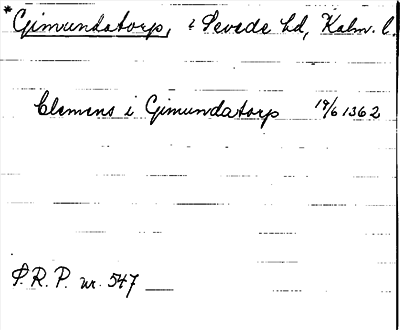 *Gimundatorp, i Sevede hd, Kalm. l.
Clemens i Gimundatorp 19/6 1362
S.R.P. nr. 547